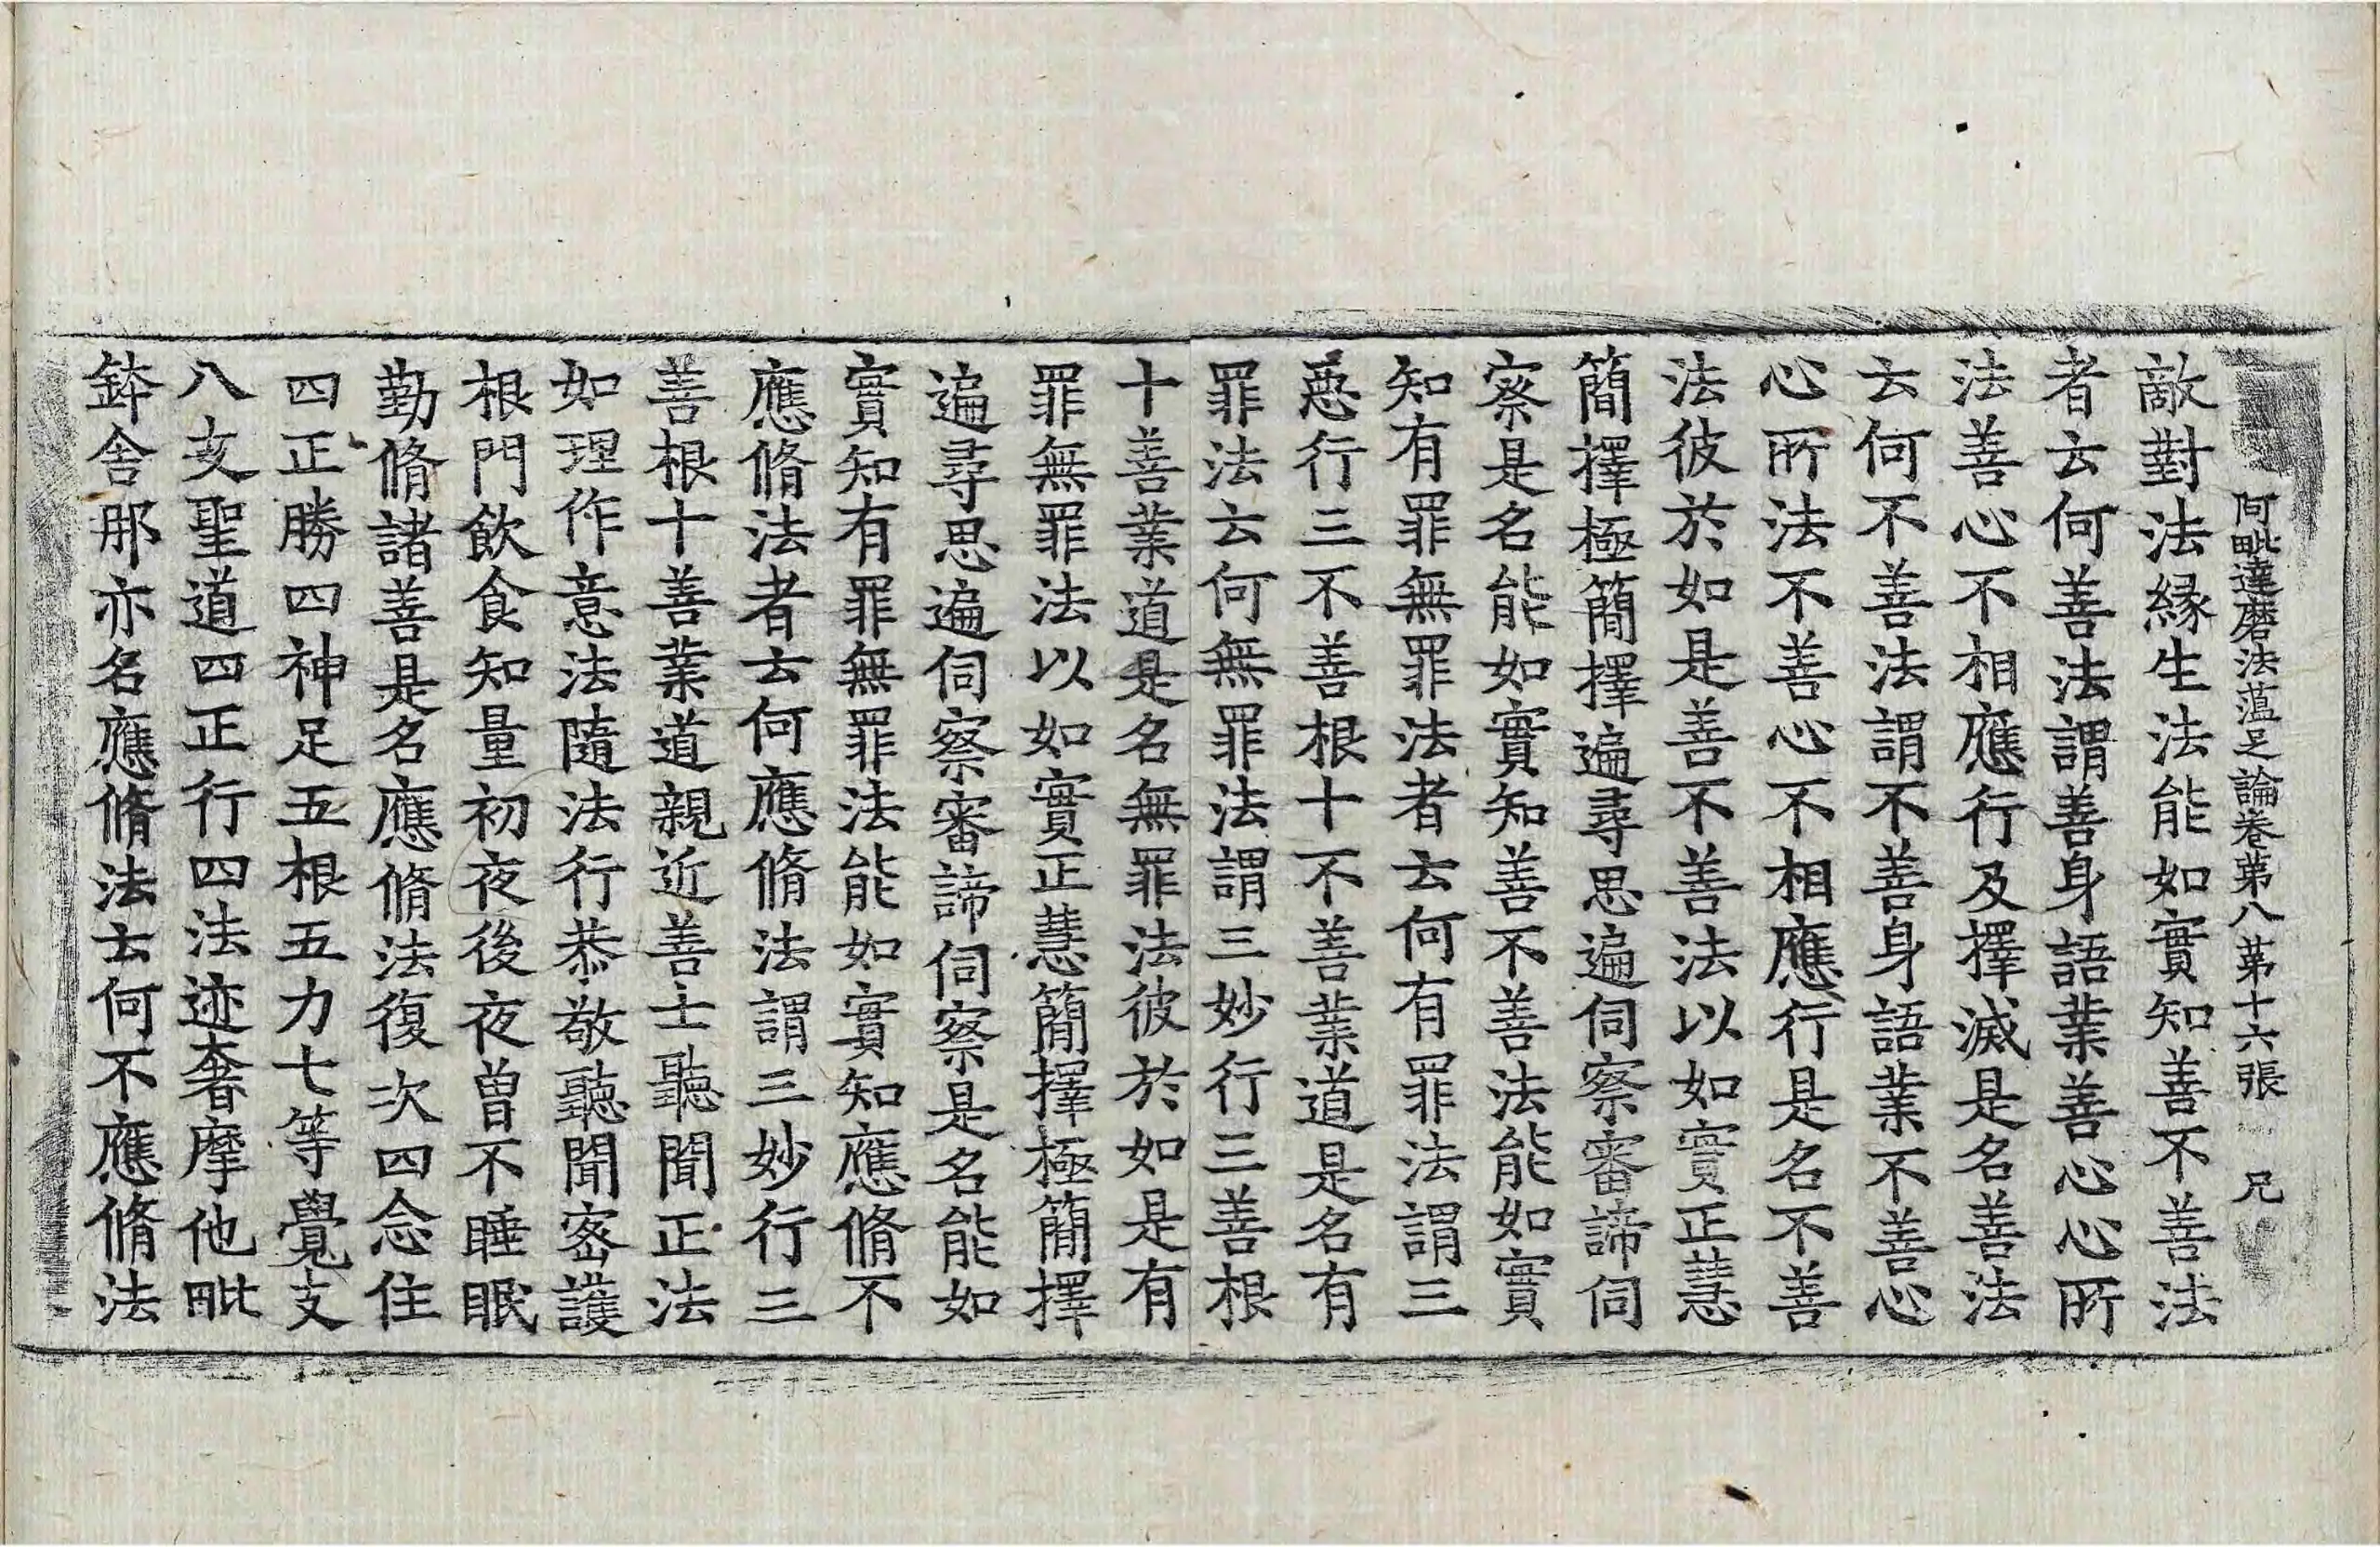 阿毗達磨法蘊足論卷第八 第十六張 兄
敵對法縁生法能如實知善不善法
者云何善法謂善身語業善心心所
法善心不相應行及擇滅是名善法
云何不善法謂不善身語業不善心
心所法不善心不相應行是名不善
法彼於如是善不善法以如實正慧
簡擇極簡擇遍尋思遍伺察審諦伺
察是名能如實知善不善法能如實
知有罪無罪法者云何有罪法謂三
惡行三不善根十不善業道是名有
罪法云何無罪法謂三妙行三善根
十善業道是名無罪法彼於如是有
罪無罪法以如實正慧簡擇極簡擇
遍尋思遍伺察審諦伺察是名能如
實知有罪無罪法能如實知應脩不
應脩法者云何應脩法謂三妙行三
善根十善業道親近善士聽聞正法
如理作意法隨法行恭敬聽聞密護
根門飲食知量初夜後夜曾不睡眠
勤脩諸善是名應脩法復次四念住
四正勝四神足五根五力七等覺支
八支聖道四正行四法迹奢摩他毗
鉢舍那亦名應脩法云何不應脩法